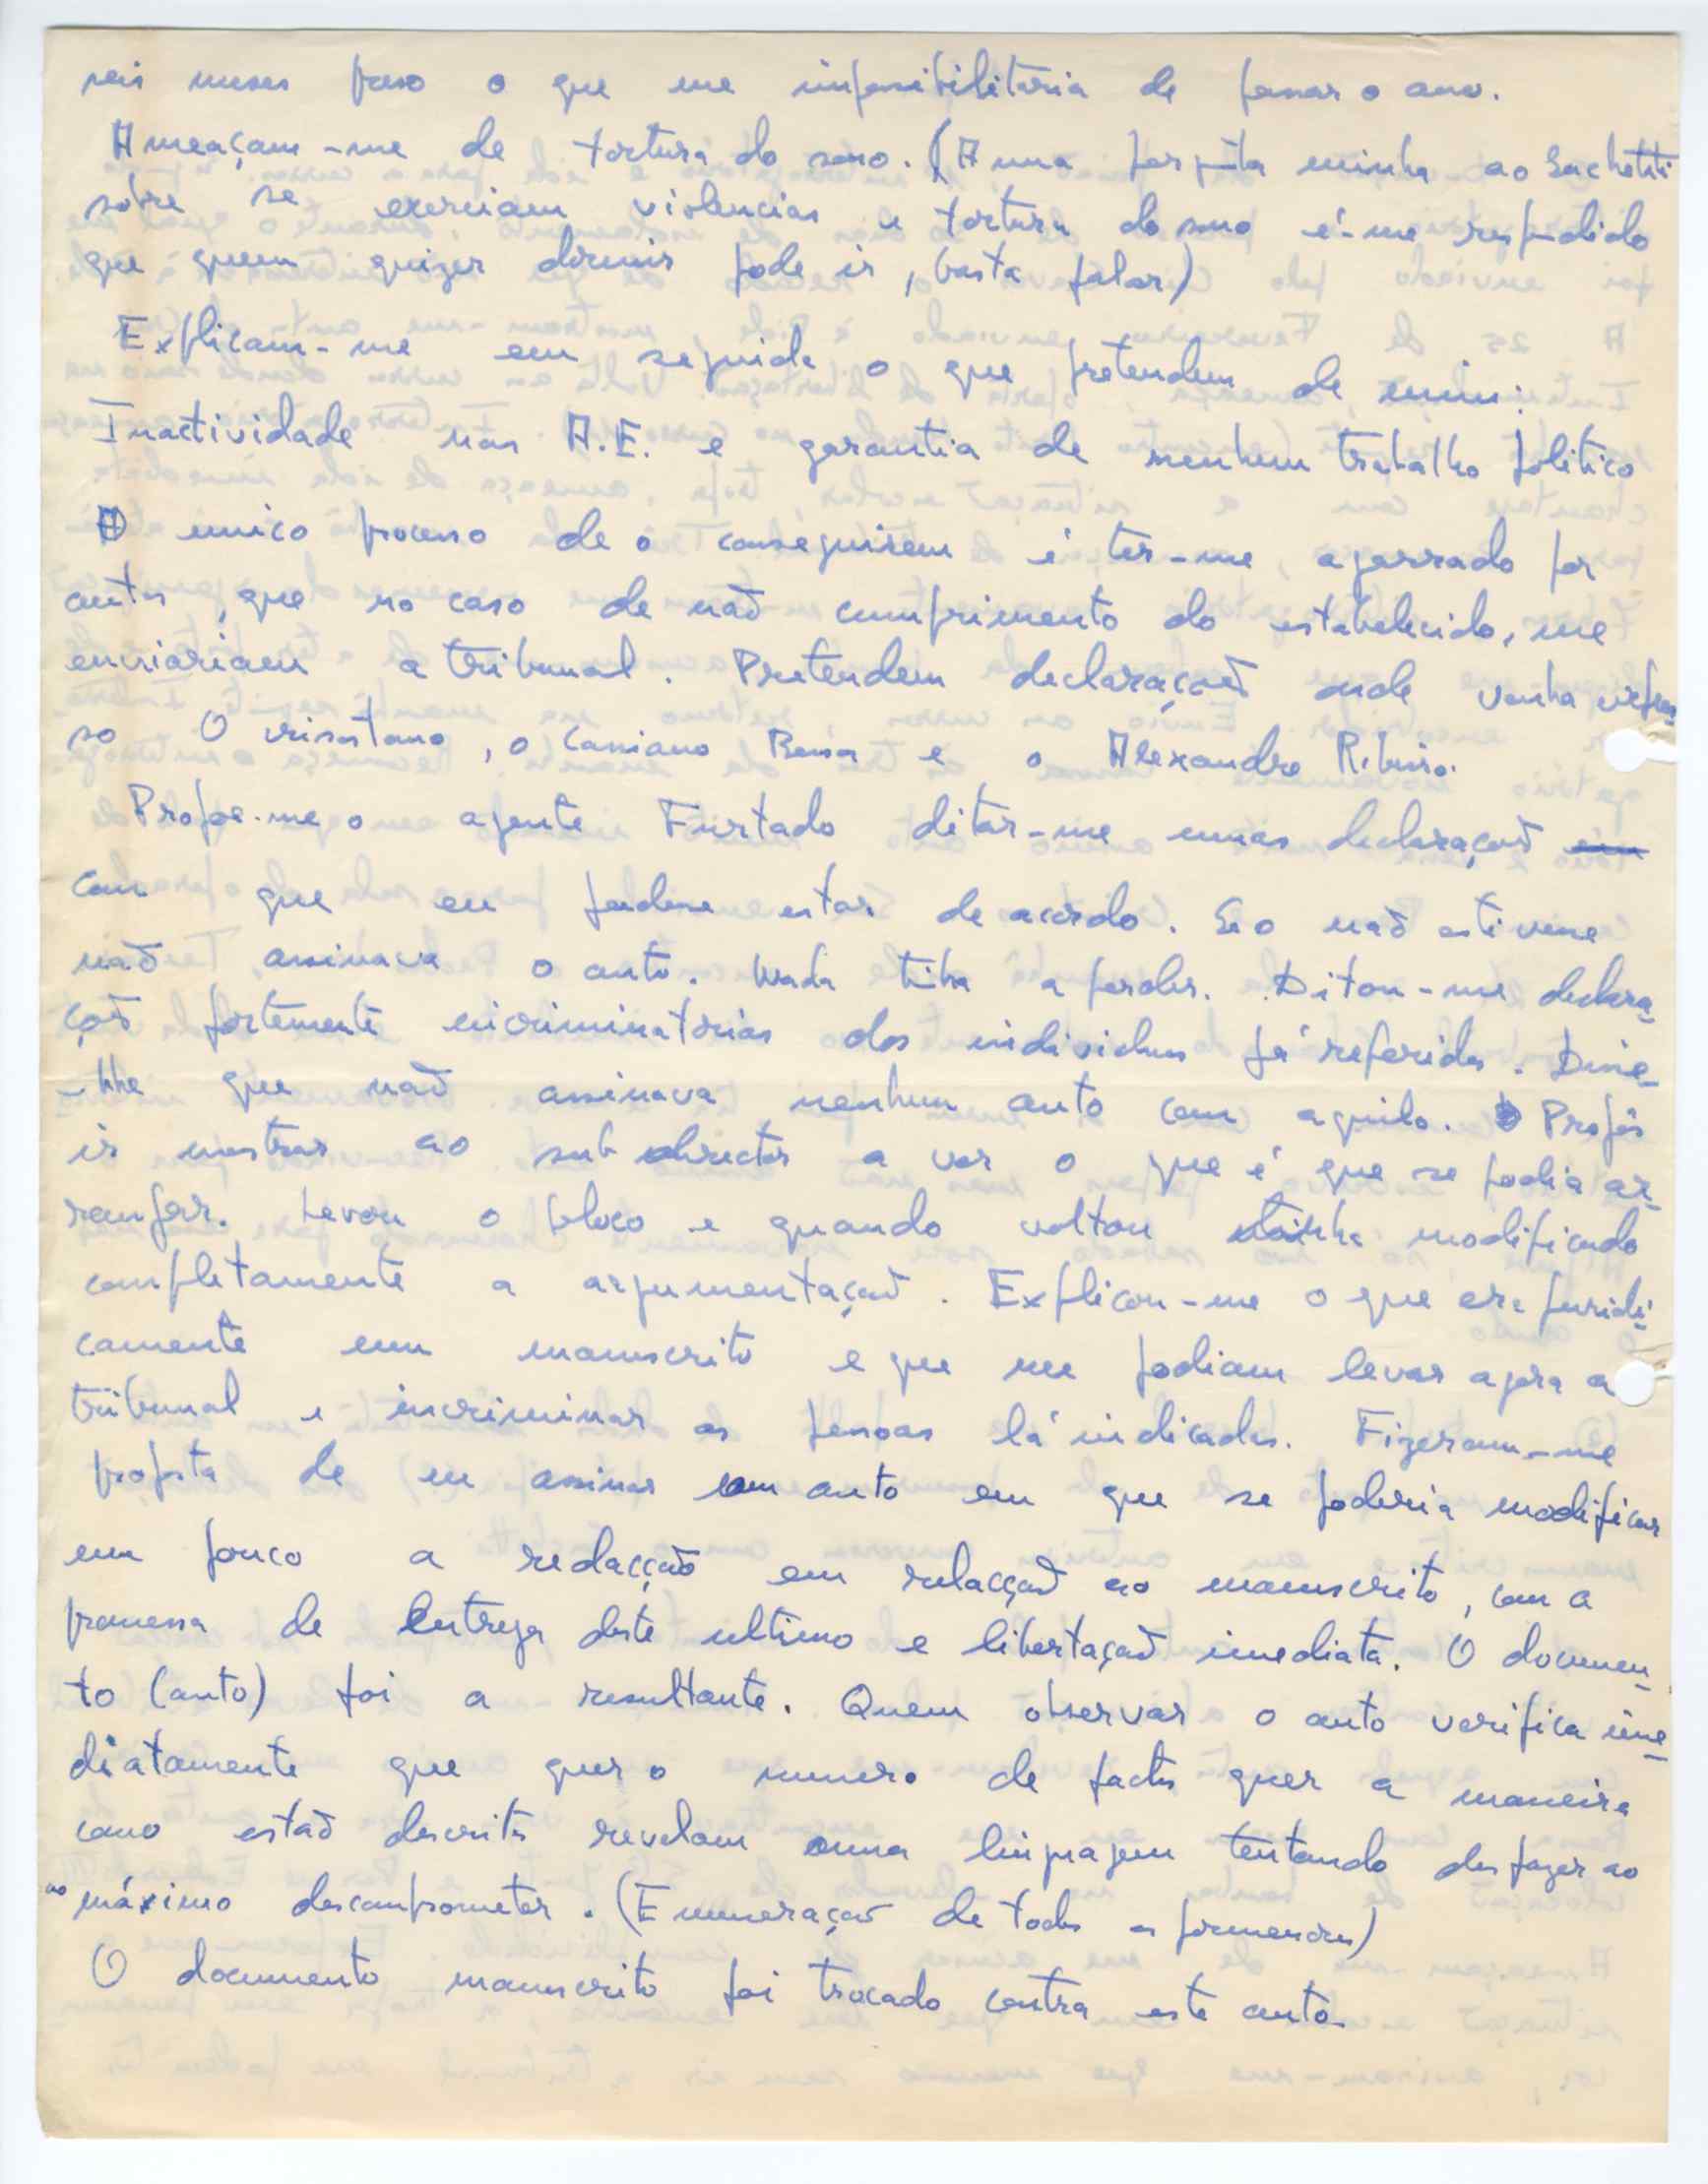 seis meses preso o que me impossibilitaria de passar o ano.
Ameaçam-me de tortura do sono. (A uma pergunta minha ao Sachetti
sobre se exerciam violencias e tortura do sono é-me respondido
que quem quizer dormir pode ir, basta falar)
Explicam-me em seguida o que pretendem de mim:
Inactividade nas A.E. e garantia de nenhum trabalho politico
O unico processo de o conseguirem é ter-me agarrado por
autos, que no caso de não cumprimento do estabelecido, me
enviariam a tribunal. Pretendem declaração onde venha
so O , o Cansano e o Alexandre Ribeiro.
Propoe-me o agente Furtado ditar-me umas declaraçoes
com que eu pudesse estar de acordo. Se o não estivesse
não assinava o auto. Nada tinha a perder. Ditou-me declara-
ções fortemente incriminatorias dos individuos já referidos. Disse-
-lhe que não assinava nenhum auto com aquilo. Propôs
ir mostrar ao sub director a ver o que é que se podia ar-
ranjar. Levou o bloco e quando voltou tinha modificado
completamente a argumentação. Explicou-me o que era juridi-
camente um manuscrito e que me podiam levar agora a
tribunal e incriminar as pessoas lá indicadas. Fizeram-me
proposta de eu assinar um auto em que se poderia modificar
um pouco a redacção em relacção ao manuscrito, com a
promessa de entrega deste ultimo e libertação imediata. O documen-
to (auto) foi a resultante. Quem observar o auto verifica ime-
diatamente que quer o numero de factos quer a maneira
como estão descritos revelam uma linguagem tentando desfazer ao
ao máximo descomprometer. (Enumeração de todos os pormenores)
O documento manuscrito foi trocado contra este auto.